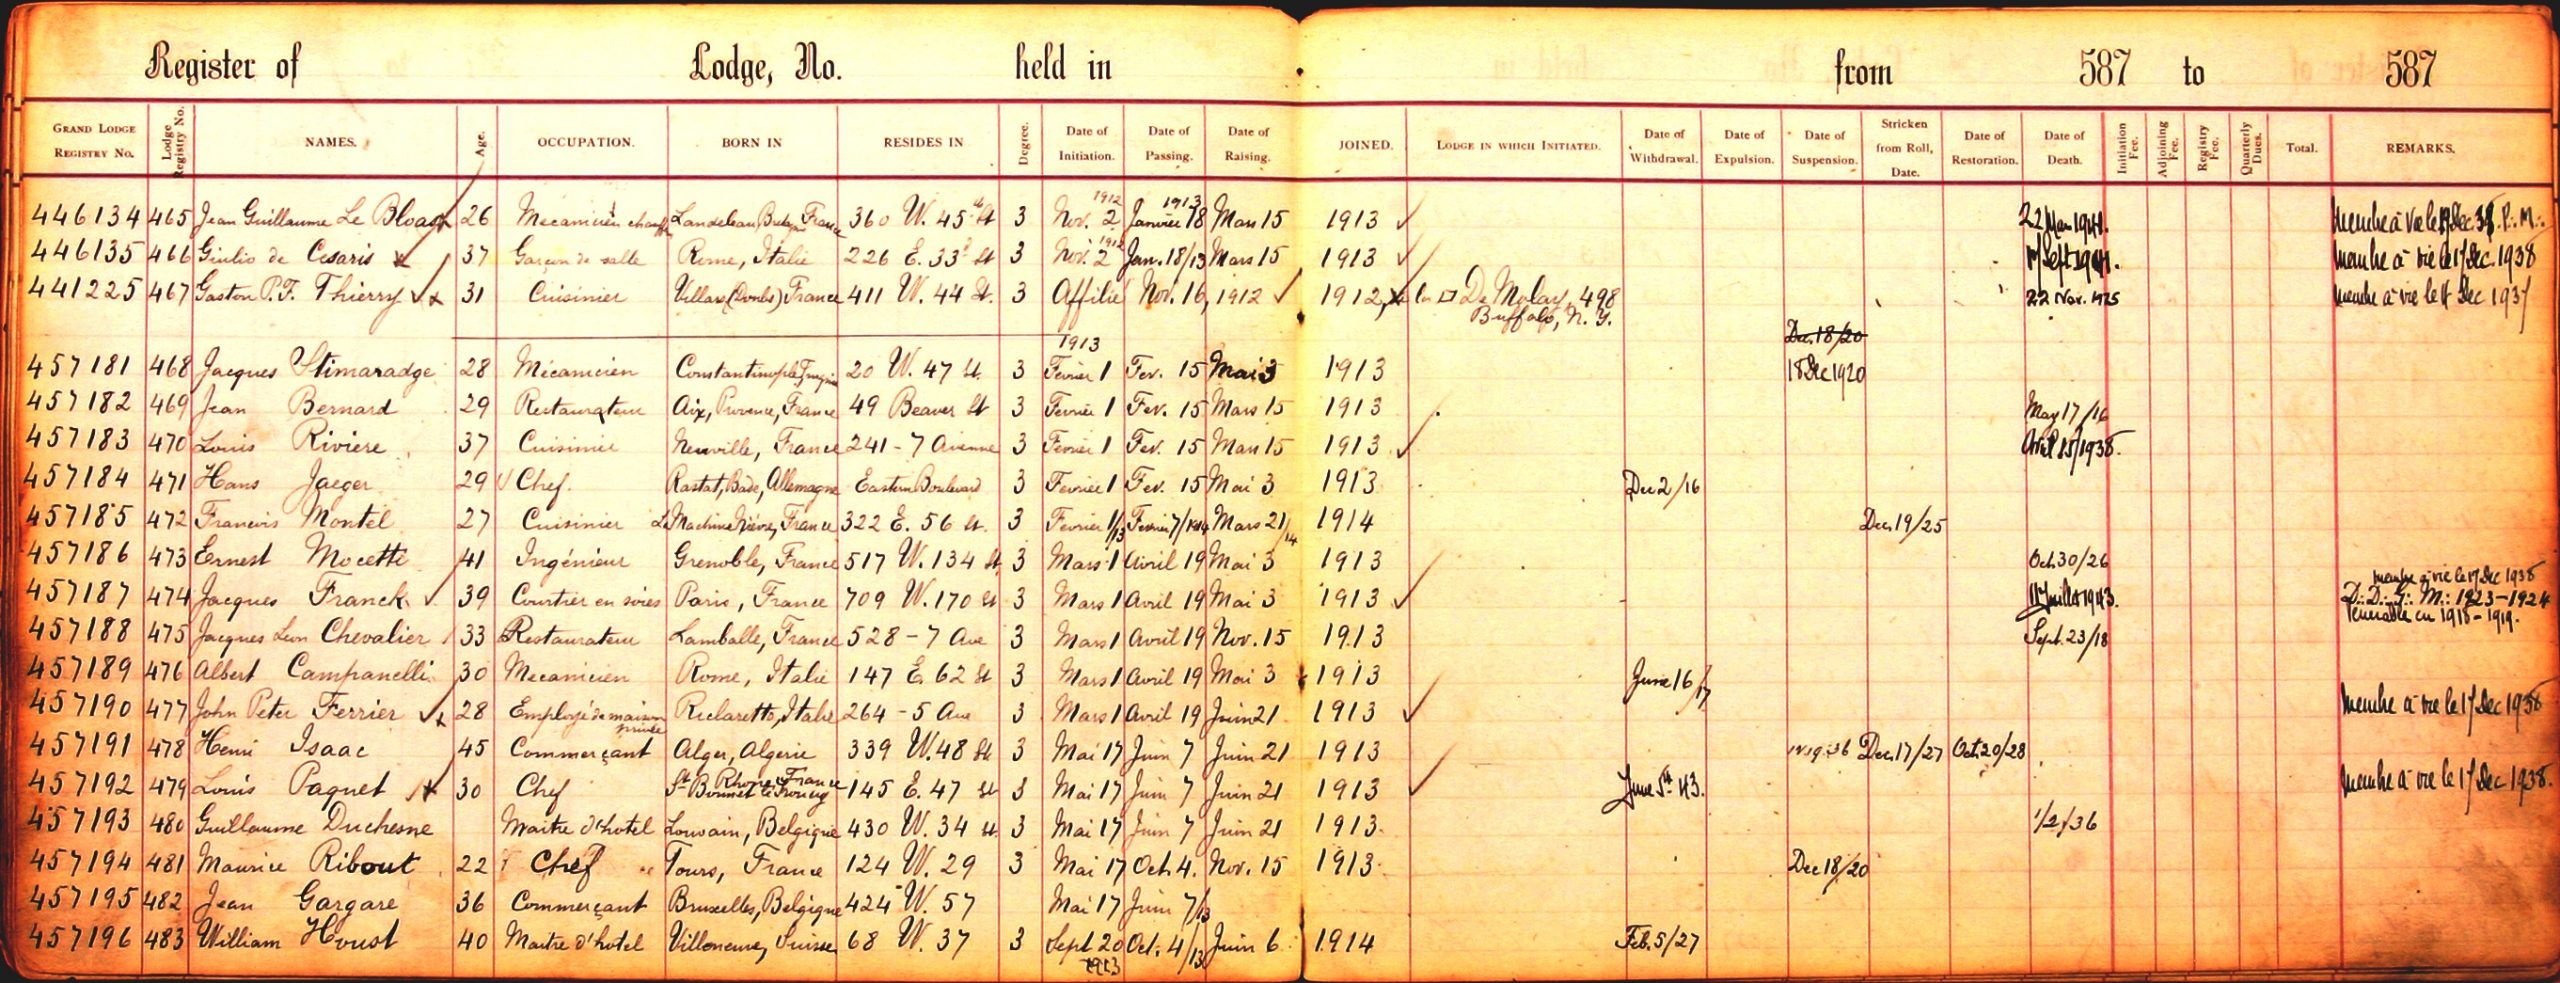 Register of Lodge, No. held in from 587 to 587
GRAND LODGE REGISTRY NO. Lodge Registry No. NAMES. Age. OCCUPATION. BORN IN RESIDES IN Degree. Date of Initiation. Date of Passing. Date of Raising. JOINED. LODGE IN WHICH INITIATED. Date of Withdrawal. Date of Expulsion. Date of Suspension. Stricken from Roll, Date. Date of Restoration. Date of Death. Initiation Fee. Adjoining Fee. Registry Fee. Quarterly Dues. Total. REMARKS.
446134 465 Jean Guillaume Le 26 Mecanicien France 360 W. 45th St 3 Nov. 2 1912 Janvier 18 1913 Mars 15 1913 22 1941. membre à vie le Dec. 38 P.: M.:
446135 466 Giulio de Cesaris 37 Garçon de salle Rome, Italie 226 E. 33d St 3 Nov. 2 1912 Jan. 18/13 Mars 15 1913 17 Sept 1941. membre à vie le 17 Dec. 1938
441225 467 Gaston P. F. Thierry 31 Cuisinier Villars (Doubs) France 411 W. 44 St. 3 Affilié Nov. 16, 1912 1912 De Molay, 498 22 Nov. 1925 membre à vie le Dec 1937
Buffalo, N. Y.
Dec. 18/20
457181 468 Jacques Stimaradge 28 Mécanicien Constantinople 20 W. 47 St. 3 1913 Fevrier 1 Fev. 15 Mai 3 1913 18 Dec 1920
457182 469 Jean Bernard 29 Restaurateur Aix, Provence, France 49 Beaver St 3 Fevrier 1 Fev. 15 Mars 15 1913 May 17/16
457183 470 Louis Riviere 37 Cuisinier Neuville, France 241 - 7 Avenue 3 Fevrier 1 Fev. 15 Mars 15 1913 Avril 25/1938.
457184 471 Hans Jaeger 29 Chef. Rastat, Bade, Allemagne Eastern Boulevard 3 Fevrier 1 Fev. 15 Mai 3 1913 Dec 2/16
457185 472 Francois Montel 27 Cuisinier La Machine Nièvre, France 322 E. 56 St. 3 Fevrier 1/13 Fevrier 7/1914 Mars 21/14 1914 Dec. 19/25
457186 473 Ernest Mocetti 41 Ingénieur Grenoble, France 517 W. 134 St 3 Mars 1 Avril 19 Mai 3 1913 Oct. 30/26
membre à vie le 17 Dec 1938
457187 474 Jacques Franck 39 Courtier en soies Paris, France 709 W. 170 St 3 Mars 1 Avril 19 Mai 3 1913 Juillet 1943. D.: D.: G.: M.: 1923-1924
Venerable en 1918-1919.
457188 475 Jacques Leon Chevalier 33 Restaurateur Lamballe, France 528 - 7 Ave 3 Mars 1 Avril 19 Nov. 15 1913 Sept. 23/18
457189 476 Albert Campanelli 30 Mecanicien Rome, Italie 147 E. 62 St 3 Mars 1 Avril 19 Mai 3 1913 June 16/17
457190 477 John Peter Ferrier 28 Employé de maison privée Riclaretto, Italie 264 - 5 Ave 3 Mars 1 Avril 19 Juin 21 1913 membre à vie le 17 Dec 1938
457191 478 Henri Isaac 45 Commerçant Alger, Algerie 339 W. 48 St 3 Mai 17 Juin 7 Juin 21 1913 Dec. 17/27 Oct. 20/28
457192 479 Louis Paquet 30 Chef St Bonnet Rhone France 145 E. 47 St 3 Mai 17 Juin 7 Juin 21 1913 June 5th 43. membre à vie le 17 Dec 1938.
457193 480 Guillaume Duchesne Maitre d'hotel Louvain, Belgique 430 W. 34 St. 3 Mai 17 Juin 7 Juin 21 1913 1/2/36
457194 481 Maurice Ribout 22 Chef Tours, France 124 W. 29 3 Mai 17 Oct. 4. Nov. 15 1913 Dec 18/20
457195 482 Jean Gargare 36 Commerçant Bruxelles, Belgique 424 W. 57 Mai 17 Juin 7/13
457196 483 William Houst 40 Maitre d'hotel Villeneuve, Suisse 68 W. 37 3 Sept 20 1913 Oct. 4/13 Juin 6 1914 Feb. 5/27